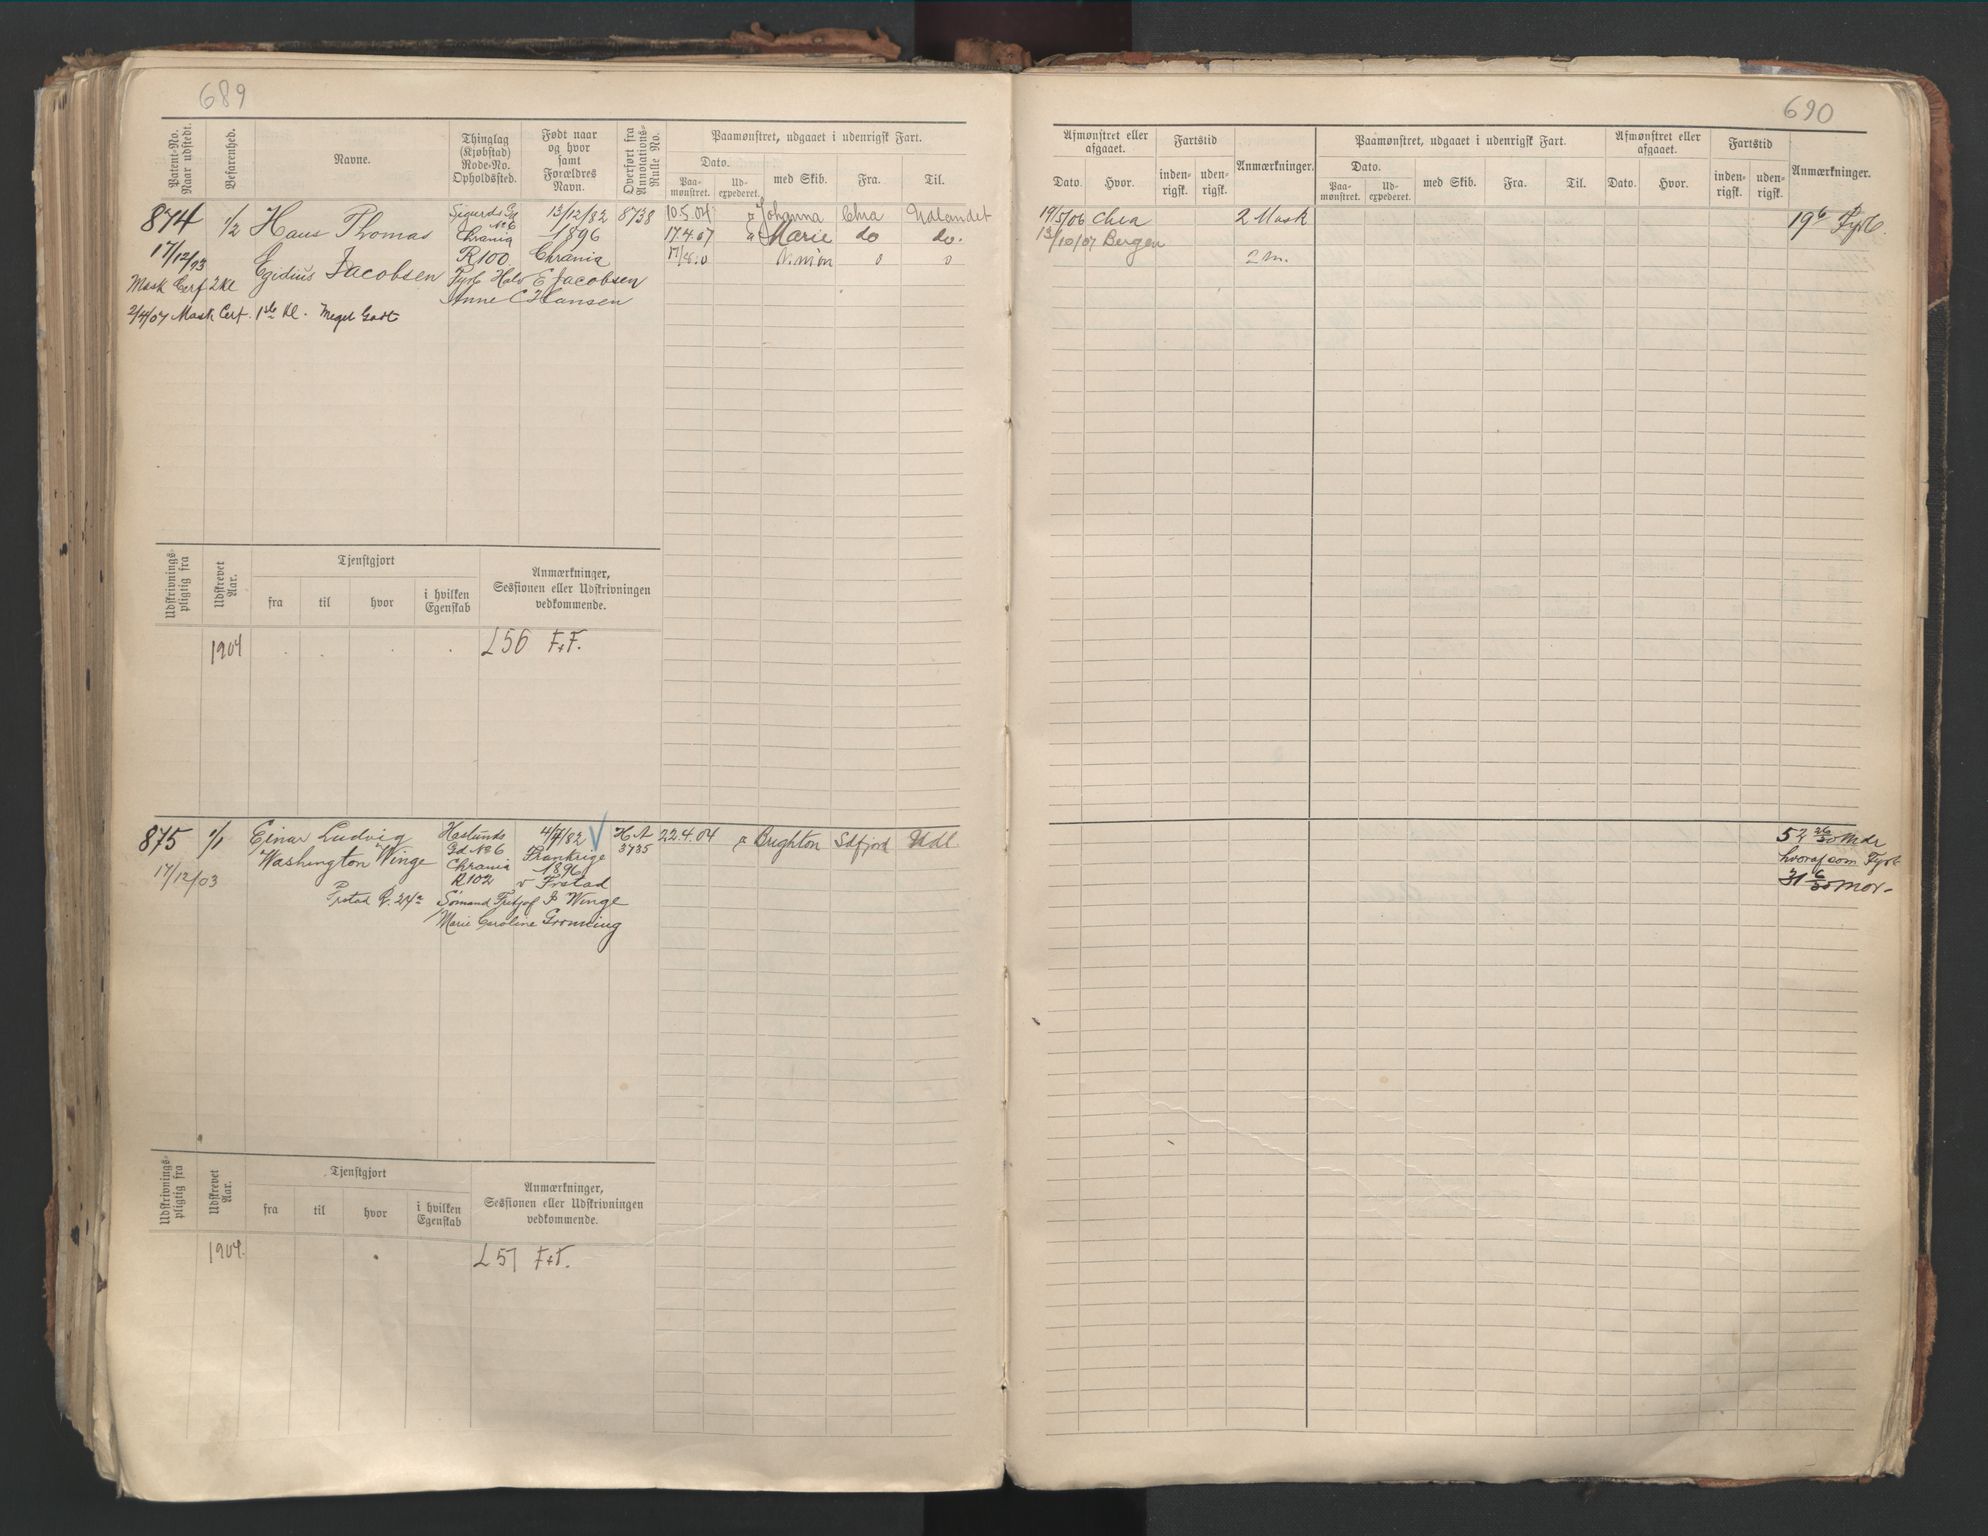 689
Patent-No. Naar udstedt.
Befarenhed.
Navne.
Thinglag (Kjøbstad) Rode-No. Opholdssted.
Født naar og hvor samt Forældres Navn.
Overført fra Annotations-Rulle No.
Paamønstret, udgaaet i udenrigsk Fart.
Dato.
Paa-mønstret.
Ud-expederet.
med Skib.
Fra.
Til.
874 1/2 Hans Thomas Sigurds Gd 13/12/82 8738 10.5.04 Johanna Chra Udlandet
No 6 1896 17.4.07 Marie do do.
17/12/03 Egidius Jacobsen Chrania R100 Chrania
Mask Cerf 2 Kl Fyrb Halv E Jacobsen
Anne C Hansen
2/4/07 Mask Cerf. 1ste Kl. Meget Godt
Udskrivnings-pligtig fra
Udskrevet Aar.
Tjenstgjort
fra
til
hvor
i hvilken Egenskab
Anmærkninger, Sessionen eller Udskrivningen vedkommende.
1904 L56 F.F.
875 1/1 Einar Ludvig Haslunds 4/7/82 H A 22.4.04 Brighton Sdfjord Udl
Washington Winge Gd No 6 Frankrige 3735
17/12/03 Chrania 1896
R102 v Frstad
Frstad R. 24a Sømand Fritjof J Winge
Marie Caroline Grønning
Udskrivnings-pligtig fra
Udskrevet Aar.
Tjenstgjort
fra
til
hvor
i hvilken Egenskab
Anmærkninger, Sessionen eller Udskrivningen vedkommende.
1904. L 57 F+F.
690
Afmønstret eller afgaaet.
Dato.
Hvor.
Fartstid
inden-rigsk.
uden-rigsk.
Anmærkninger.
Paamønstret, udgaaet i udenrigsk Fart.
Dato.
Paa-mønstret.
Ud-expederet.
med Skib.
Fra.
Til.
Afmønstret eller afgaaet.
Dato.
Hvor.
Fartstid
inden-rigsk.
uden-rigsk.
Anmærkninger.
19/5/06 Chra 2 Mask
13/10/07 Bergen
2 m.
52 26/30 Mdr
hvoraf som Fyrb
31 6/30